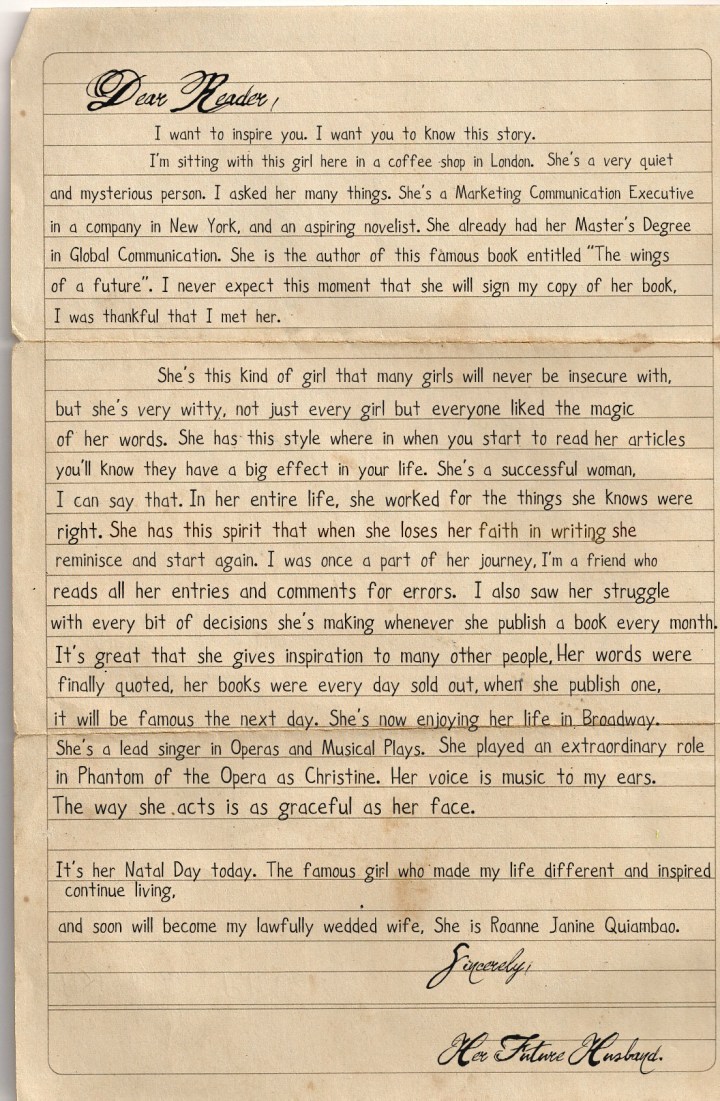 Dear Reader,
I want to inspire you. I want you to know this story.
I'm sitting with this girl here in a coffee shop in London. She's a very quiet
and mysterious person. I asked her many things. She's a Marketing Communication Executive
in a company in New York, and an aspiring novelist. She already had her Master's Degree
in Global Communication. She is the author of this famous book entitled "The wings
of a future". I never expect this moment that she will sign my copy of her book,
I was thankful that I met her.
She's this kind of girl that many girls will never be insecure with,
but she's very witty, not just every girl but everyone liked the magic
of her words. She has this style where in when you start to read her articles
you'll know they have a big effect in your life. She's a successful woman,
I can say that. In her entire life, she worked for the things she knows were
right. She has this spirit that when she loses her faith in writing she
reminisce and start again. I was once a part of her journey, I'm a friend who
reads all her entries and comments for errors. I also saw her struggle
with every bit of decisions she's making whenever she publish a book every month.
It's great that she gives inspiration to many other people, Her words were
finally quoted, her books were every day sold out, when she publish one,
it will be famous the next day. She's now enjoying her life in Broadway.
She's a lead singer in Operas and Musical Plays. She played an extraordinary role
in Phantom of the Opera as Christine. Her voice is music to my ears.
The way she acts is as graceful as her face.
It's her Natal Day today. The famous girl who made my life different and inspired
continue living,
and soon will become my lawfully wedded wife, She is Roanne Janine Quiambao.
Sincerely,
Her Future Husband.